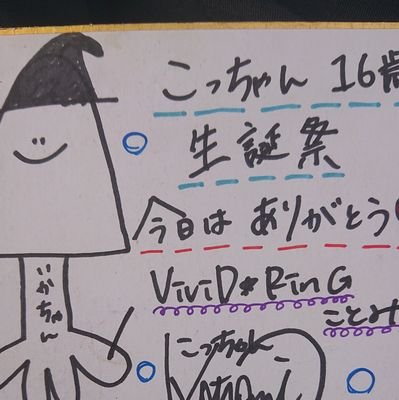 こっちゃん 16歳
生誕祭
今日は ありがとう
ViViD*RinG
ことみ
いかちゃん
こっちゃん